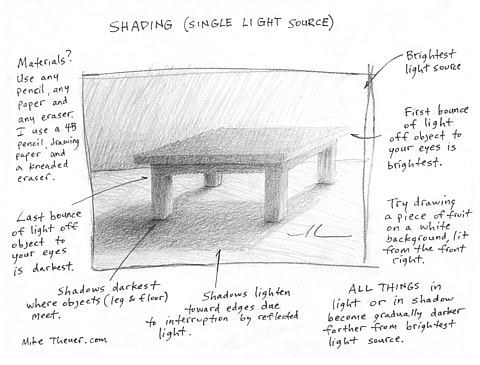 SHADING (SINGLE LIGHT SOURCE)
Materials?
Use any
pencil, any
paper and
any eraser.
I use a 4B
pencil, drawing
paper and
a kneaded
eraser.
Last bounce
of light off
object to
your eyes
is darkest.
Shadows darkest
where objects (leg & floor)
meet.
Shadows lighten
toward edges due
to interruption by reflected
light.
Brightest
light source
First bounce
of light
off object to
your eyes is
brightest.
Try drawing
a piece of fruit
on a white
background, lit
from the front
right.
ALL THINGS in
light or in shadow
become gradually darker
farther from brightest
light source.
Mike Theuer.com